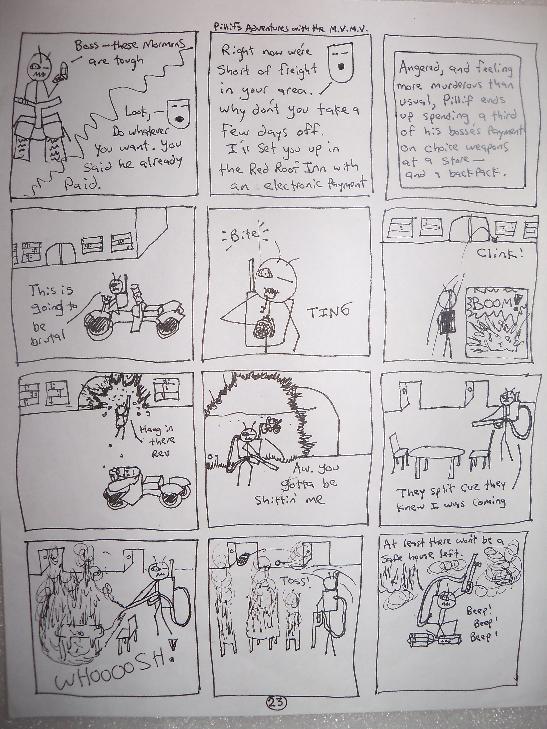 Pillif's Adventures with the M.V.M.V.
Boss—these Mormons
are tough
Look,
Do whatever
you want. You
said he already
Paid.
Right now we're
Short of freight
in your area.
Why don't you take a
Few days off.
I'll set you up in
the Red Roof Inn with
an electronic Payment
Angered, and feeling
more murderous than
usual, Pillif ends
up spending a third
of his bosses Payment
on choice weapons
at a store—
and a backpack.
This is
going to
be
brutal
Bite
TING
Clink!
BOOM!
Hang in
there
Rev
Aw. you
gotta be
Shittin' me
They split cuz they
knew I was coming
WHOOOOSH!
Toss!
At least there won't be a
safe house left.
Beep!
Beep!
Beep!
23